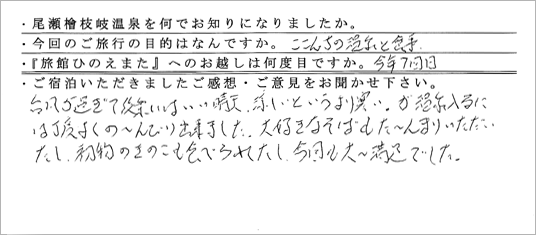 ・尾瀬檜枝岐温泉を何でお知りになりましたか。
・今回のご旅行の目的はなんですか。ここんちの温泉と食事
・『旅館ひのえまた』へのお越しは何度目ですか。今年7回目
・ご宿泊いただきましたご感想・ご意見をお聞かせ下さい。
台風が過ぎて いい晴天、涼しいというより寒い。が温泉入るに
は丁度よくの〜んびり出来ました。大好きなそばもた〜んまりいただい
たし、初物のきのこも食べられたし、今回も大〜満足でした。